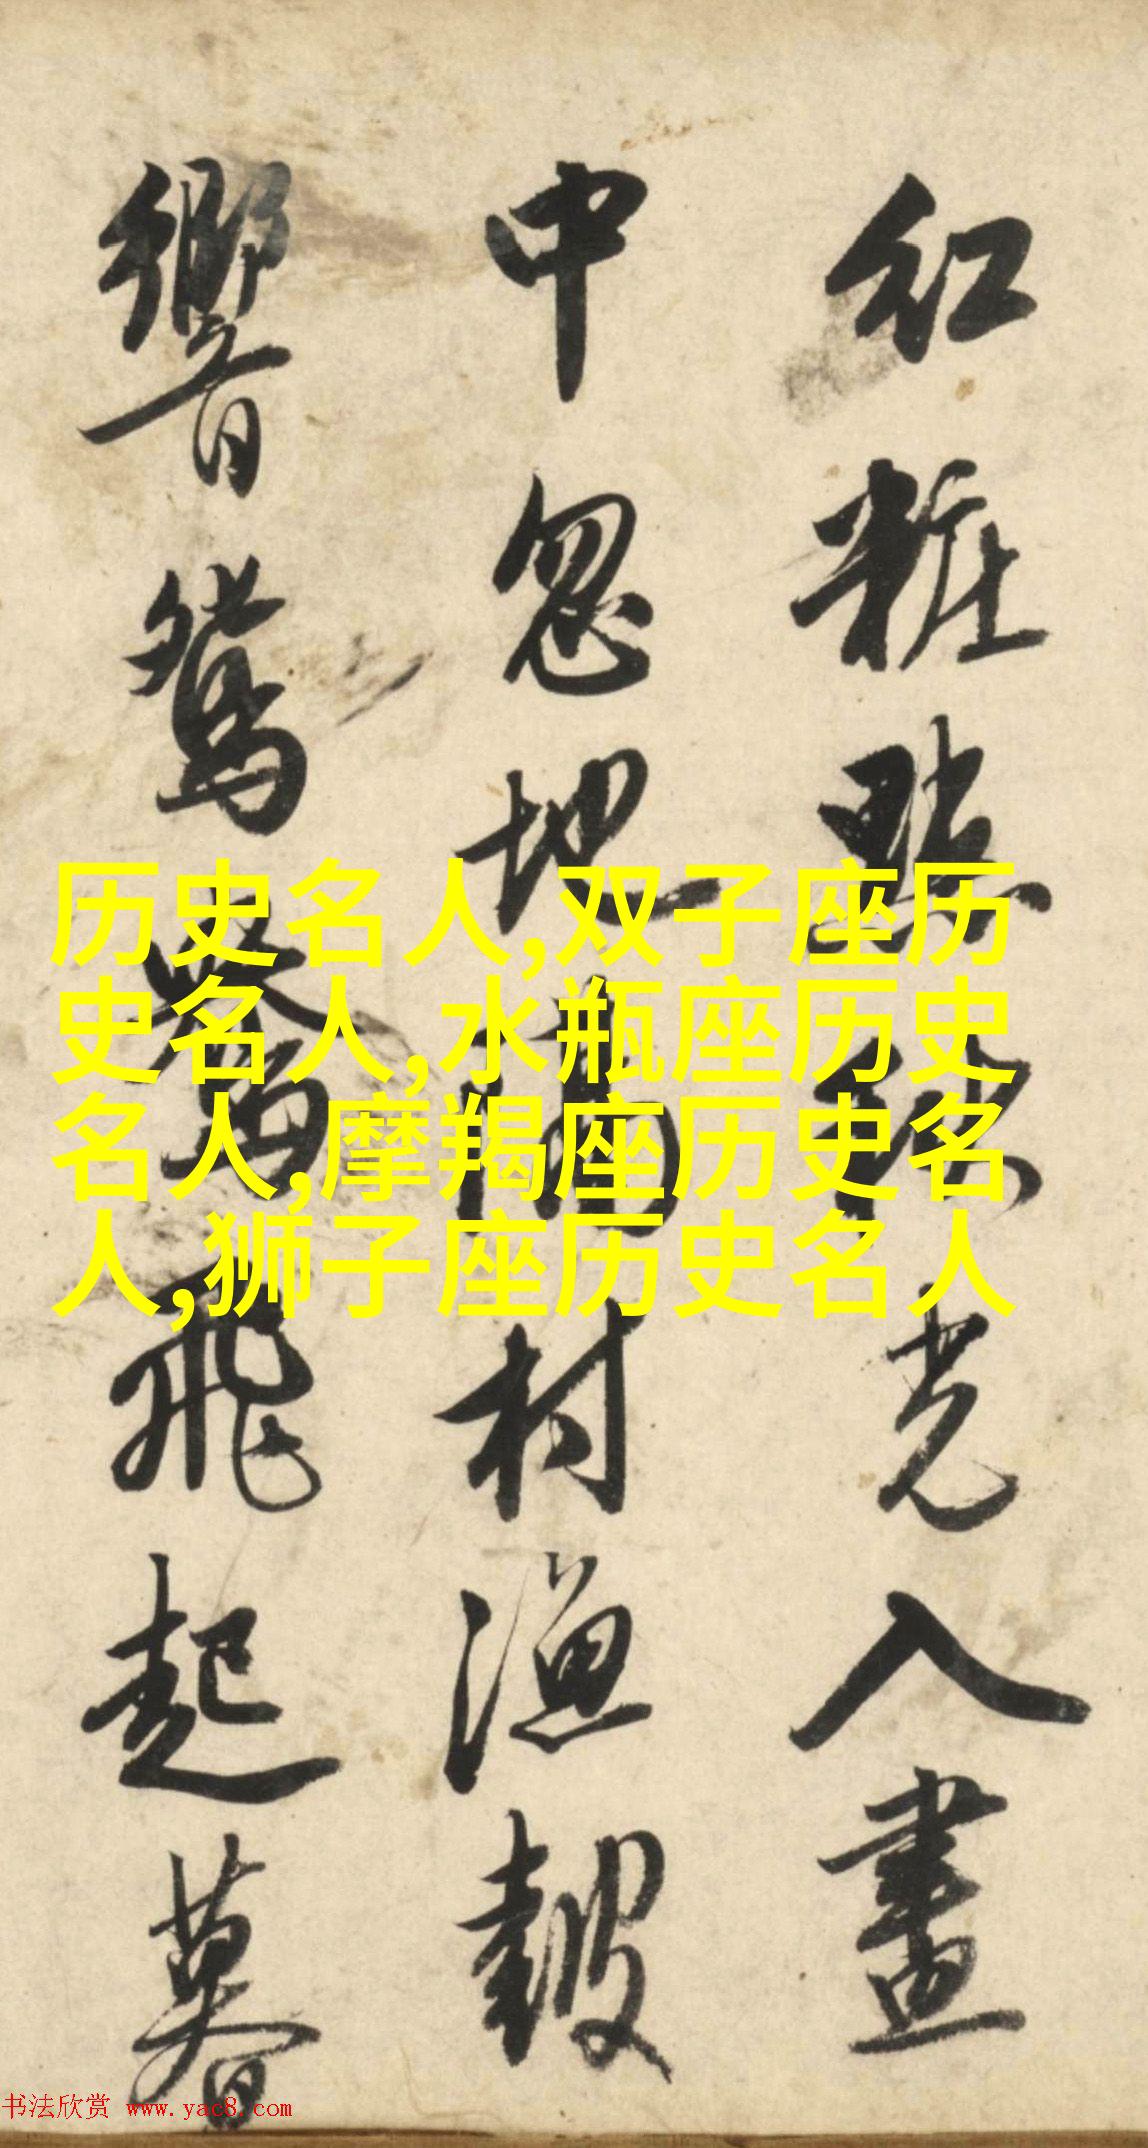 紅粧點秋光入畫
中忽地滿村漁鼓
響鴛鴦飛起暮
历史名人,双子座历
史名人,水瓶座历史
名人,摩羯座历史名
人,狮子座历史名人
书法欣赏 www.yac8.com